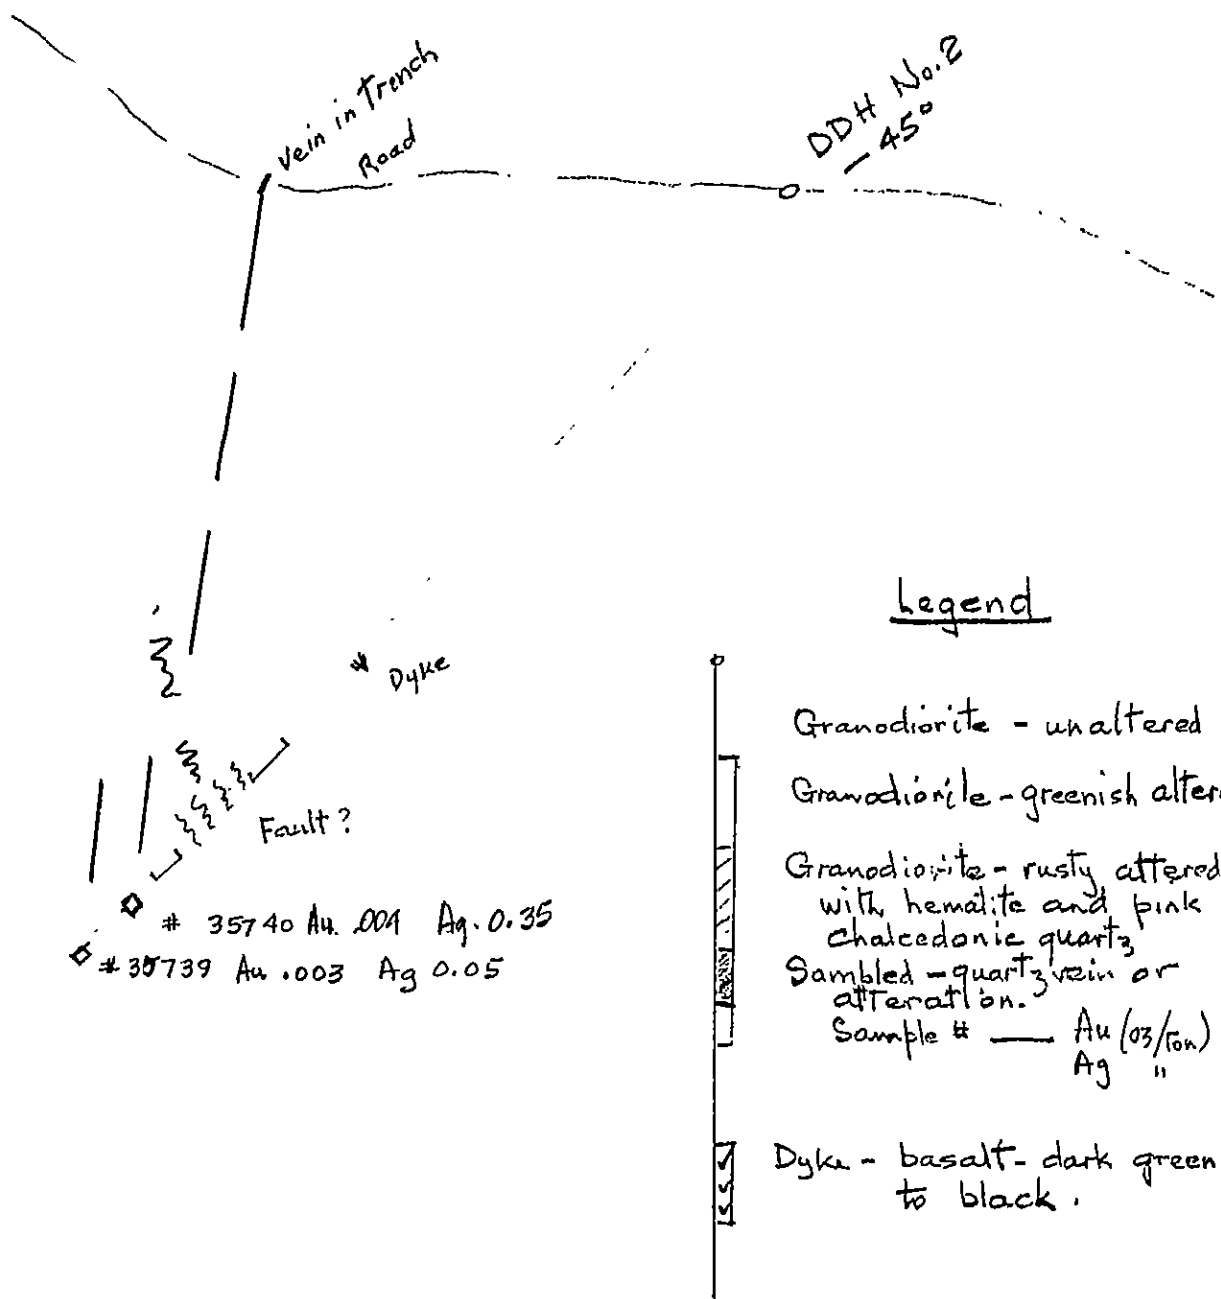 Vein in Trench
Road
DDH No.2
- 45°
Dyke
Fault?
# 35740 Au .004 Ag. 0.35
# 35739 Au .003 Ag 0.05
Legend
Granodiorite - unaltered
Granodiorite - greenish alter
Granodiorite - rusty altered
with hematite and pink
chalcedonic quartz
Sambled - quartz vein or
alteration.
Sample # — Au (oz/Ton)
Ag "
Dyke - basalt - dark green
to black.